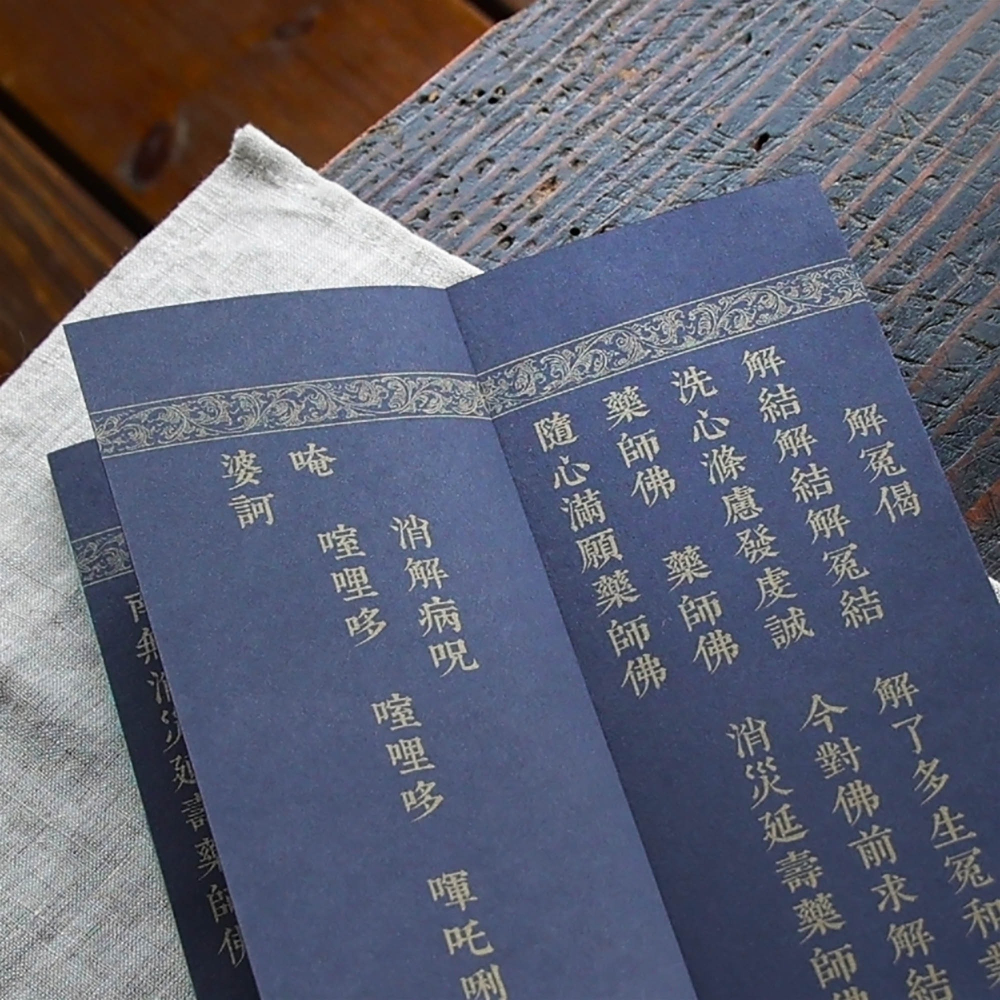 解冤偈
解結解結解冤結 解了多生冤和業
洗心滌慮發虔誠 今對佛前求解結
藥師佛 藥師佛 消災延壽藥師佛
隨心滿願藥師佛
消解病呪
唵 㗌哩哆 㗌哩哆 㖷吒唎
婆訶
南無消災延壽藥師佛